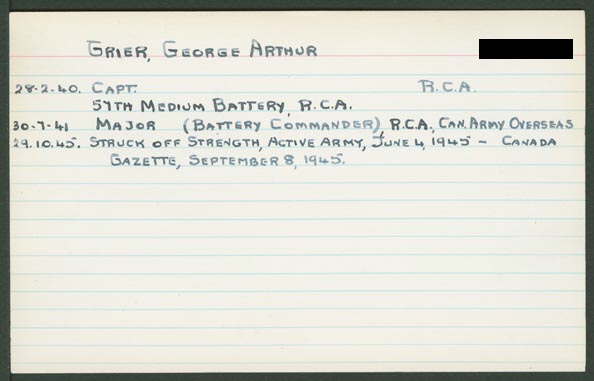 GRIER, GEORGE ARTHUR
28-2-40. CAPT. R.C.A.
57TH MEDIUM BATTERY, R.C.A.
30-7-41 MAJOR (BATTERY COMMANDER), R.C.A., CAN. ARMY OVERSEAS
29.10.45. STRUCK OFF STRENGTH, ACTIVE ARMY, JUNE 4, 1945 – CANADA
GAZETTE, SEPTEMBER 8, 1945.